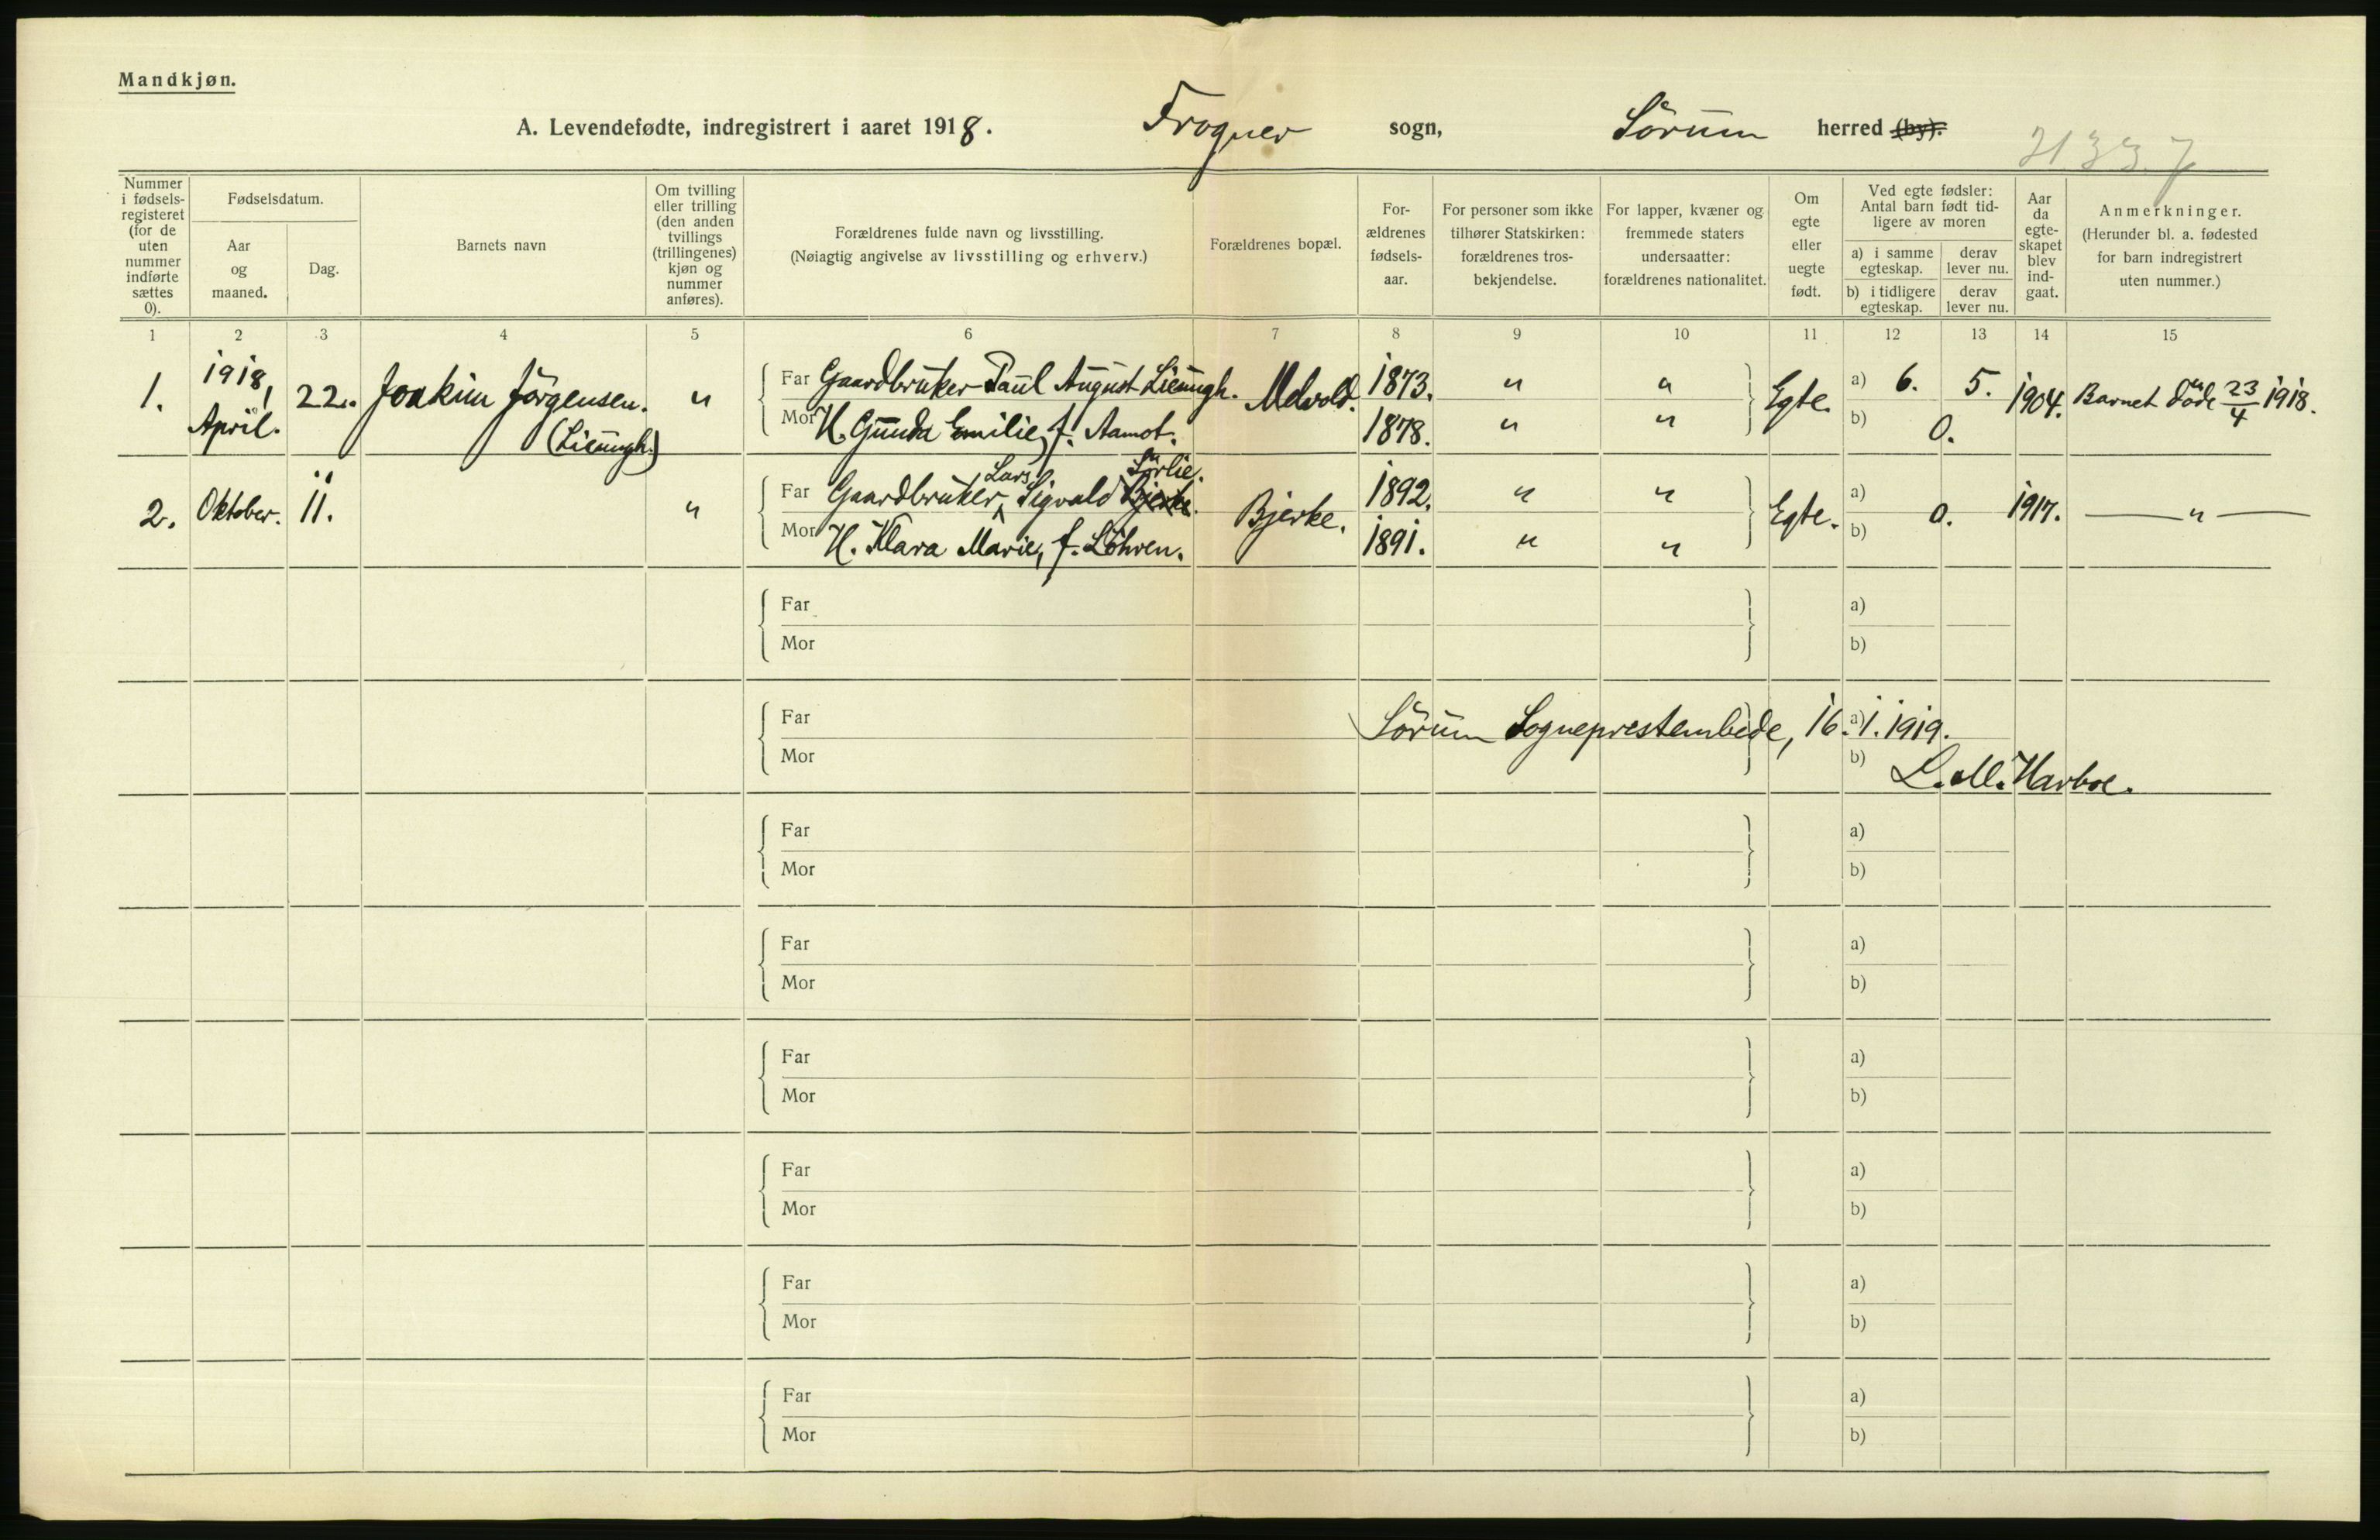 Mandkjøn.
A. Levendefødte, indregistrert i aaret 1918. Frogner sogn, Sörum herred (by).
Nummer i fødselsregisteret (for de uten nummer indførte sættes 0).
Fødselsdatum.
Aar og maaned.
Dag.
Barnets navn
Om tvilling eller trilling (den anden tvillings (trillingenes) kjøn og nummer anføres).
Forældrenes fulde navn og livsstilling.
(Nøiagtig angivelse av livsstilling og erhverv.)
Forældrenes bopæl.
Forældrenes fødselsaar.
For personer som ikke tilhører Statskirken: forældrenes trosbekjendelse.
For lapper, kvæner og fremmede staters undersaatter: forældrenes nationalitet.
Om egte eller uegte født.
Ved egte fødsler: Antal barn født tidligere av moren
a) i samme egteskap. derav lever nu.
b) i tidligere egteskap. derav lever nu.
Aar da egteskapet blev indgaat.
Anmerkninger.
(Herunder bl. a. fødested for barn indregistrert uten nummer.)
1 2 3 4 5 6 7 8 9 10 11 12 13 14 15
1. 1918, April. 22. Joakim Jörgensen. (Lieungh.) "
Far Gaardbruker Paul August Lieungh. 1873. " " Egte. a) 6. 5. 1904. Barnet döde 23/4 1918.
Mor H. Gunda Emilie, f. Aamot. 1878. " " b) 0.
2. Oktober. 11. "
Far Gaardbruker, Lars Sigvald Bjerke. Sörlie. Bjerke. 1892. " " Egte. a) 0. 1917. — " —
Mor H. Klara Marie, f. Löhren. 1891. " " b)
Far a)
Mor b)
Far Sörum Sogneprestembede, 16. 1. 1919. a)
Mor b) L. M. Harboe.
Far a)
Mor b)
Far a)
Mor b)
Far a)
Mor b)
Far a)
Mor b)
Far a)
Mor b)
Far a)
Mor b)